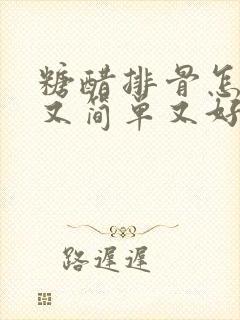 糖醋排骨怎
又简单又好
路遲遲